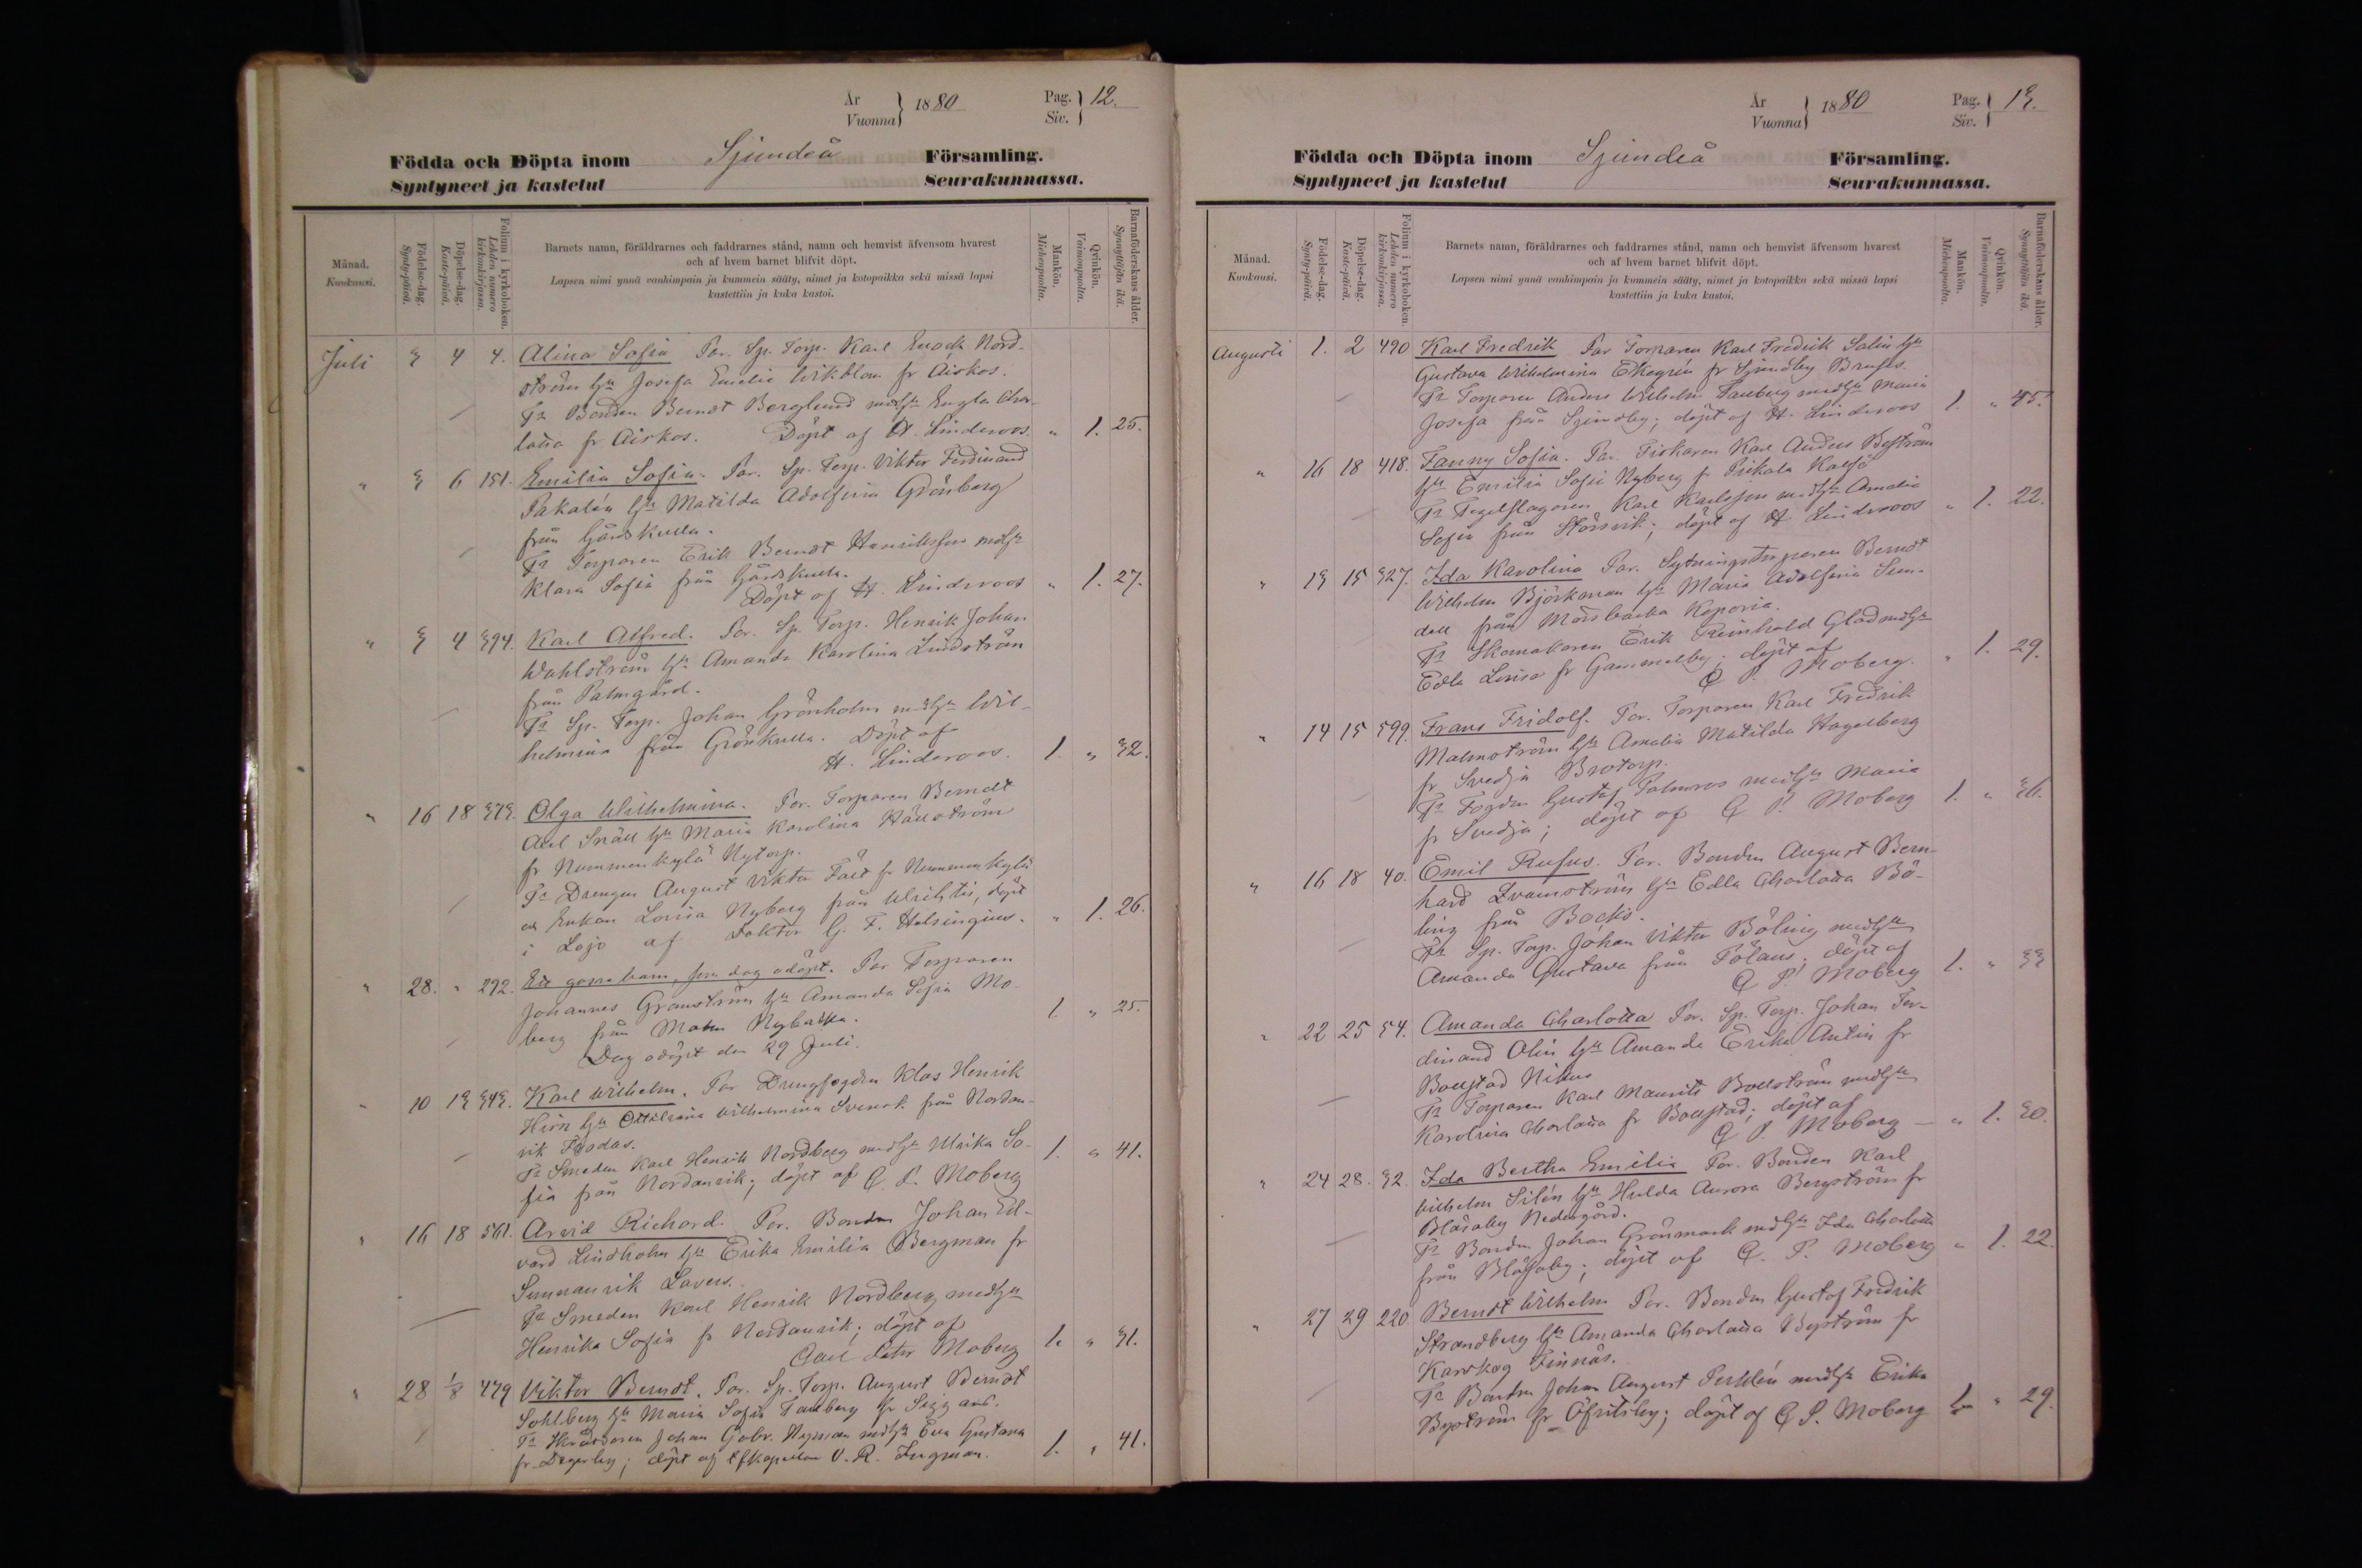 År
Vuonna } 1880
Pag.
Siv. } 12.
Födda och Döpta inom Sjundeå Församling.
Syntyneet ja kastetut Seurakunnassa.
Månad.
Kuukausi.
Födelse-dag.
Synty-päivä.
Döpelse-dag.
Kaste-päivä.
Folium i kyrkoboken.
Lehden numero
kirkonkirjassa.
Barnets namn, föräldrarnes och faddrarnes stånd, namn och hemvist äfvensom hvarest
och af hvem barnet blifvit döpt.
Lapsen nimi ynnä vanhimpain ja kummein sääty, nimet ja kotopaikka sekä missä lapsi
kastettiin ja kuka kastoi.
Mankön.
Miehenpuolta.
Qvinkön.
Vaimonpuolta.
Barnaföderskans ålder.
Synnyttäjän ikä.
Juli 3 4 4. Alina Sofia Par. Sp. Torp. Karl Enock Nord-
ström hu Josefa Emelie Wikblom fr Aiskos.
Fr Bonden Berndt Berglund med hu Engla Char-
lotta fr Aiskos. Döpt af H. Linderoos. " 1. 25.
" 3 6 131. Emilia Sofia. Par. Sp. Torp. Viktor Ferdinand
Pakalén hu Matilda Adolfina Grönberg
från Gårdskulla.
Fr Torparen Erik Berndt Henriksson med hu
Klara Sofia från Gårdskulla.
Döpt af H. Linderoos " 1. 27.
" 3 4 394. Karl Alfred. Par. Sp. Torp. Henrik Johan
Wahlström hu Amanda Karolina Lindström
från Palmgård.
Fr Sp. Torp. Johan Grönholm med hu Wil-
helmina från Grönkulla. Döpt af
H. Linderoos. 1. " 32.
" 16 18 373. Olga Wilhelmina. Par. Torparen Berndt
Axel Snäll hu Maria Karolina Hällström
fr Nummenkylä Nytorp.
Fr Drengen August Viktor Fält fr Nummenkylä
och Enkan Lovisa Nyberg från Wichtis, döpt
i Lojo af Doktor G. F. Helsingius. " 1. 26.
" 28. " 292. Ett gossebarn, som dog odöpt. Par Torparen
Johannes Granström hu Amanda Sofia Mo-
berg från Malm Nybacka.
Dog odöpt den 29 Juli. 1 " 25.
" 10 13 343. Karl Wilhelm. Par Drengfogden Klas Henrik
Hirn hu Ottiliana Wilhelmina Svensk från Nordan-
vik
Fr Smeden Karl Henrik Nordberg med hu Ulrika So-
fia från Nordanvik; döpt af C. P. Moberg 1. " 41.
" 16 18 561. Arvid Richard. Par. Bonden Johan Ed-
vard Lindholm hu Erika Emilia Bergman fr
Sunnanvik Lavers.
Fr Smeden Karl Henrik Nordberg med hu
Henrika Sofia fr Nordanvik; döpt af
Carl Peter Moberg 1. " 31.
" 28 1/8 479 Viktor Berndt. Par. Sp. Torp. August Berndt
Sohlberg hu Maria Sofia Tallberg fr Siggans.
Fr Skräddaren Johan Gabr. Nyman med hu Eva Gustava
fr Degerby; döpt af V. R. Ingman. 1. " 41.
År
Vuonna } 1880
Pag.
Siv. } 13.
Födda och Döpta inom Sjundeå Församling.
Syntyneet ja kastetut Seurakunnassa.
Månad.
Kuukausi.
Födelse-dag.
Synty-päivä.
Döpelse-dag.
Kaste-päivä.
Folium i kyrkoboken.
Lehden numero
kirkonkirjassa.
Barnets namn, föräldrarnes och faddrarnes stånd, namn och hemvist äfvensom hvarest
och af hvem barnet blifvit döpt.
Lapsen nimi ynnä vanhimpain ja kummein sääty, nimet ja kotopaikka sekä missä lapsi
kastettiin ja kuka kastoi.
Mankön.
Miehenpuolta.
Qvinkön.
Vaimonpuolta.
Barnaföderskans ålder.
Synnyttäjän ikä.
Augusti 1. 2 490 Karl Fredrik Par Torparen Karl Fredrik Salin hu
Gustava Wilhelmina Ekegrén fr Sjundby
Fr Torparen Anders Wilhelm Tallberg med hu Maria
Josefa från Sjundby; döpt af H. Linderoos 1. " 45.
" 16 18 418. Fanny Sofia. Par. Fiskaren Karl Anders Boström
hu Emilia Sofia Nyberg fr Pikala Kalfö
Fr Tegelslagaren Karl Karlsson med hu Amalia
Sofia från Störsvik; döpt af H. Linderoos " 1. 22.
" 13 15 327. Ida Karolina Par. Sytningstorparen Berndt
Wilhelm Björkman hu Maria Adolfina Sun-
dell från Morsbacka Koporia.
Fr Skomakaren Erik Reinhold Glad med hu
Edla Lovisa fr Gammelby; döpt af
C P. Moberg. " 1. 29.
" 14 15 599. Frans Fridolf. Par. Torparen Karl Fredrik
Malmström hu Amalia Matilda Hagelberg
fr Svedja Brotorp.
Fr Fogden Gustaf Palmroos med hu Maria
fr Svedja; döpt af C P. Moberg 1. " 36.
" 16 18 40. Emil Rufus. Par. Bonden August Bern-
hard Qvarnström hu Edla Charlotta Bö-
ling från Bäcks.
Fr Sp. Torp. Johan Viktor Böling med hu
Amanda Gustava från Pölans; döpt af
C P. Moberg 1. " 33
" 22 25 54. Amanda Charlotta Par. Sp. Torp. Johan Fer-
dinand Olin hu Amanda Erika Antin fr
Bollstad Nikus
Fr Torparen Karl Maurits Bollström med hu
Karolina Charlotta fr Bollstad; döpt af
C P. Moberg " 1. 30.
" 24 28. 32. Ida Bertha Emilia Par. Bonden Karl
Wilhelm Silén hu Hulda Aurora Bergström fr
Blåsaby Nedergård.
Fr Bonden Johan Grönmark med hu Ida Charlotta
från Blåsaby; döpt af C. P. Moberg " 1. 22.
" 27 29 220 Berndt Wilhelm Par. Bonden Gustaf Fredrik
Strandberg hu Amanda Charlotta Byström fr
Karskog Finnäs.
Fr Bonden Johan August Perklén med hu Erika
Byström fr Öfvitsby; döpt af C P. Moberg 1 " 29.